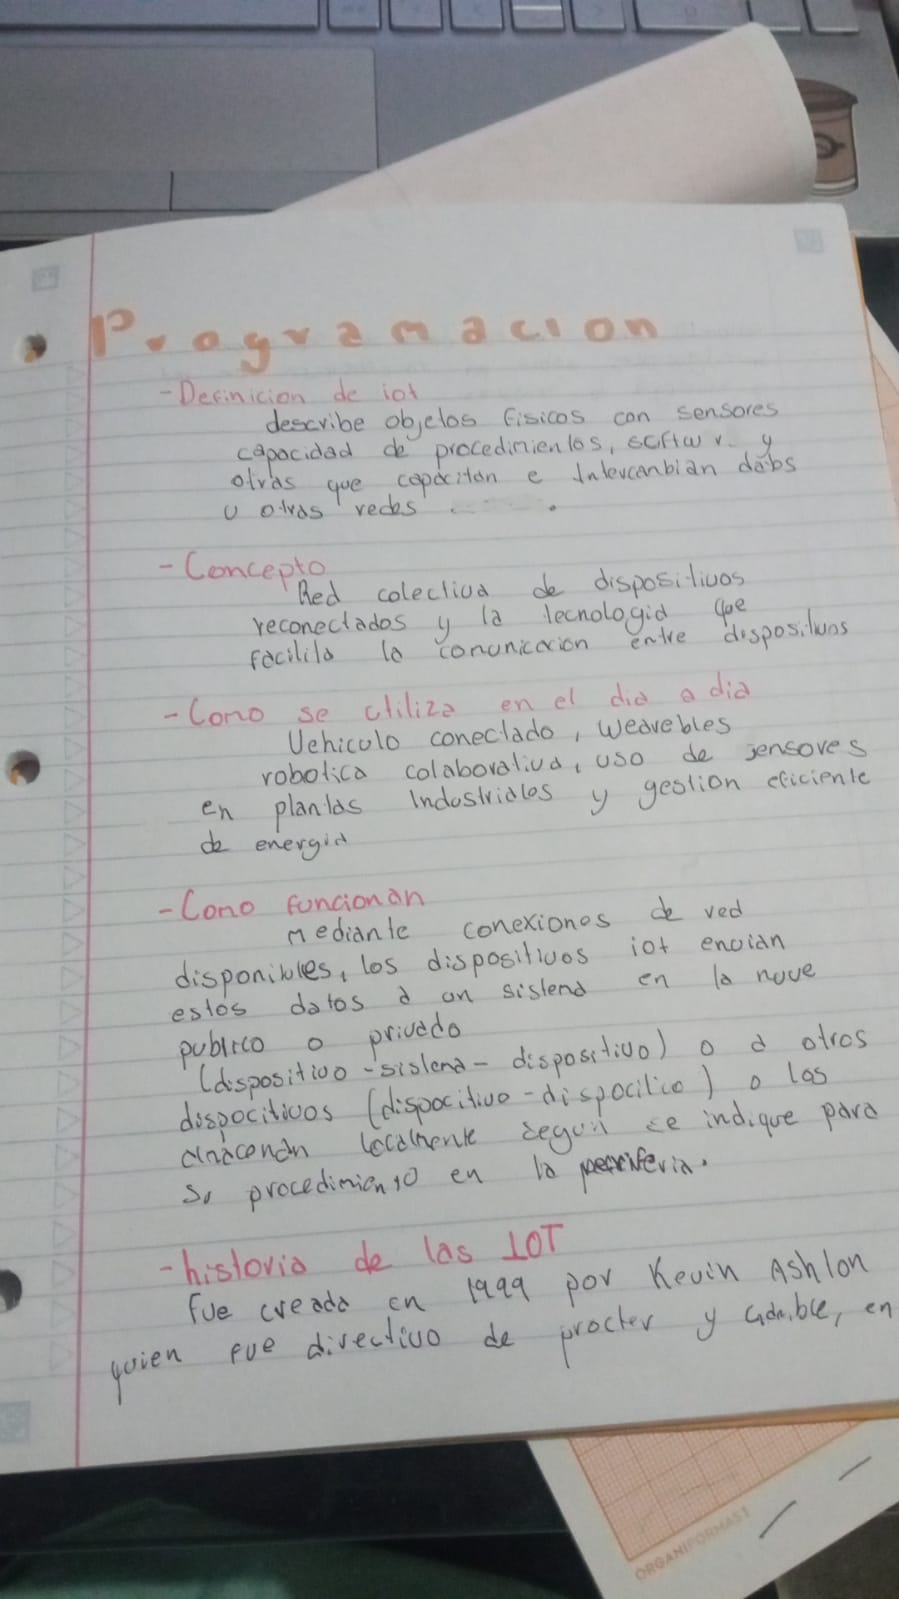 Programacion
- Definicion de iot
describe objetos fisicos con sensores
capacidad de procedimientos, softwar. y
otras que capacitan e Intercanbian datos
u otras redes .
- Concepto
Red colectiva de dispositivos
reconectados y la tecnologia que
facilita la comunicacion entre dispositivos
- Como se utiliza en el dia a dia
Vehiculo conectado, weavebles
robotica colaborativa, uso de sensores
en plantas Industriales y gestion eficiente
de energia
- Como funcionan
mediante conexiones de red
disponibles, los dispositivos iot envian
estos datos a un sistema en la nuve
publico o privado
(dispositivo - sistema - dispositivo) o a otros
dispocitivos (dispocitivo - dispocitivo) o los
almacenan localmente segun se indique para
su procedimiento en la periferia.
- historia de las IOT
fue creada en 1999 por Kevin Ashton
quien fue directivo de procter y Gamble, en
ORGANIFORMAS